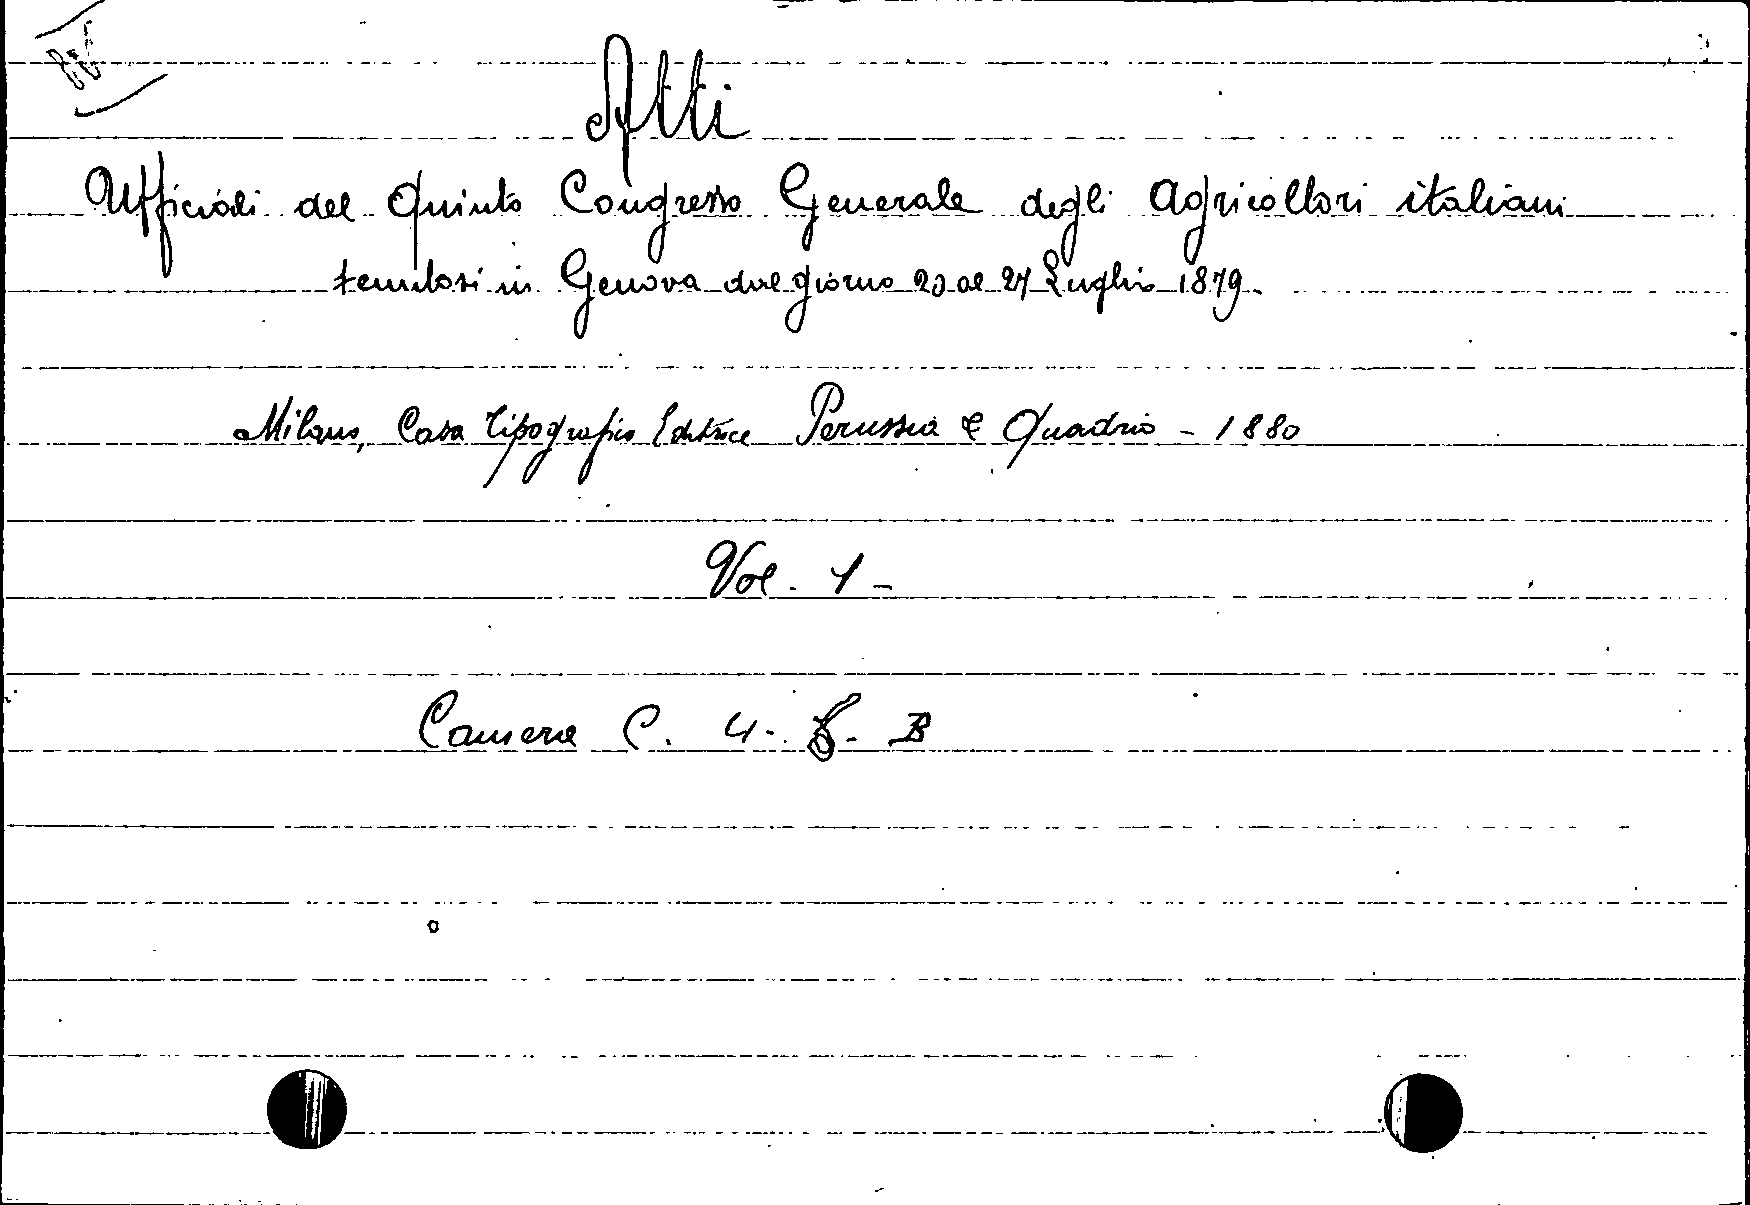 Atti
Ufficiali del Quinto Congresso Generale degli Agricoltori italiani
tenutosi in Genova dal giorno 20 al 27 Luglio 1879.
Milano, Casa Tipografica Editrice Perussia & Quadrio - 1880
Vol. 1 -
Camera C. 4. B